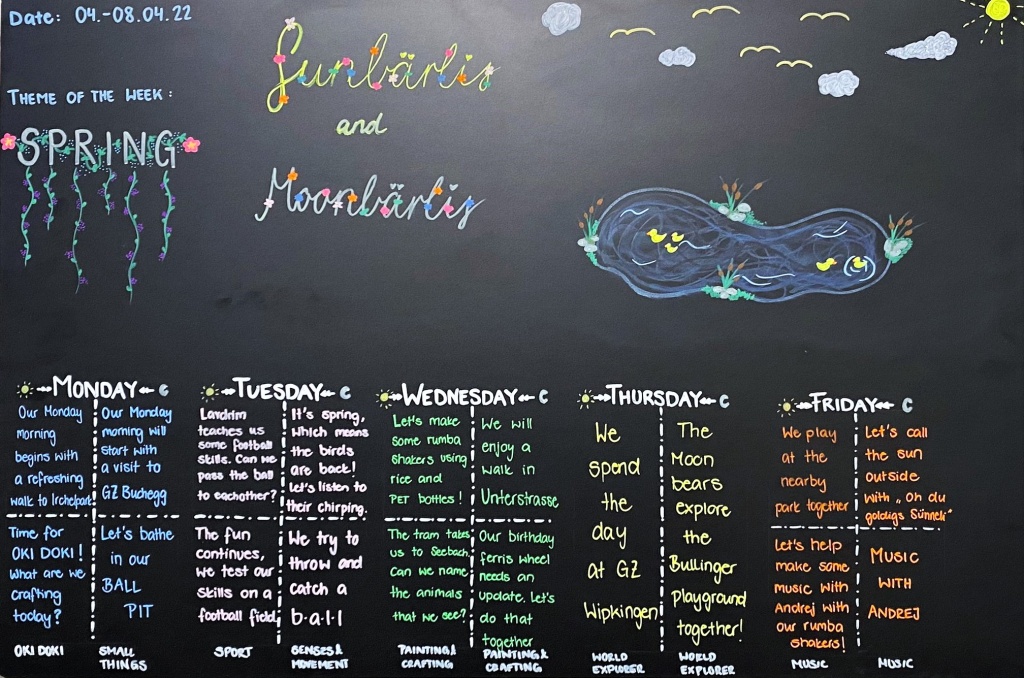 Date: 04.-08.04.22
THEME OF THE WEEK:
SPRING
Sunbärlis
and
Moonbärlis
MONDAY
Our Monday
morning
begins with
a refreshing
walk to Irchelpark!
Our Monday
morning will
start with
a visit to
GZ Buchegg
Time for
OKI DOKI!
What are we
crafting
today?
Let's bathe
in our
BALL
PIT
OKI DOKI
SMALL
THINGS
TUESDAY
Landrim
teaches us
some football
skills. Can we
pass the ball
to eachother?
It's spring,
which means
the birds
are back!
Let's listen to
their chirping.
The fun
continues,
we test our
skills on a
football field
We try to
throw and
catch a
b·a·l·l
SPORT
SENSES &
MOVEMENT
WEDNESDAY
Let's make
some rumba
shakers using
rice and
PET bottles!
We will
enjoy a
walk in
Unterstrasse
The tram takes
us to Seebach.
Can we name
the animals
that we see?
Our birthday
ferris wheel
needs an
update. Let's
do that
together
PAINTING &
CRAFTING
PAINTING &
CRAFTING
THURSDAY
We
spend
the
day
at GZ
Wipkingen
The
Moon
bears
explore
the
Bullinger
playground
together!
WORLD
EXPLORER
WORLD
EXPLORER
FRIDAY
We play
at the
nearby
park together
Let's call
the sun
outside
with „Oh du
goldigs Sünneli"
Let's help
make some
music with
Andrej with
our rumba
shakers!
MUSIC
WITH
ANDREJ
MUSIC
MUSIC